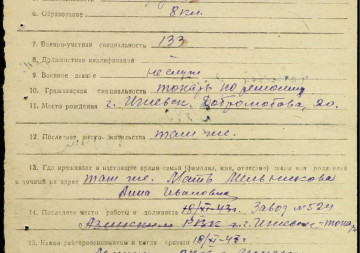 6. Образование 8 кл.
7. Военно-учетная специальность 133
8. Должностная квалификация
9. Военное звание не служ
10. Гражданская специальность токарь по
11. Место рождения г. Ижевск,
12. Последнее место жительства там же.
13. Где проживает в настоящее время семья (фамилия, имя, отчество) жены или родителей
и точный их адрес там же. Мать Мельникова
Анна Ивановна
14. Последнее место работы и должность Завод № 524
Азинским РВК г. Ижевск - токарь
15. Каким райвоенкоматом и когда призван 18/XI-43 г.